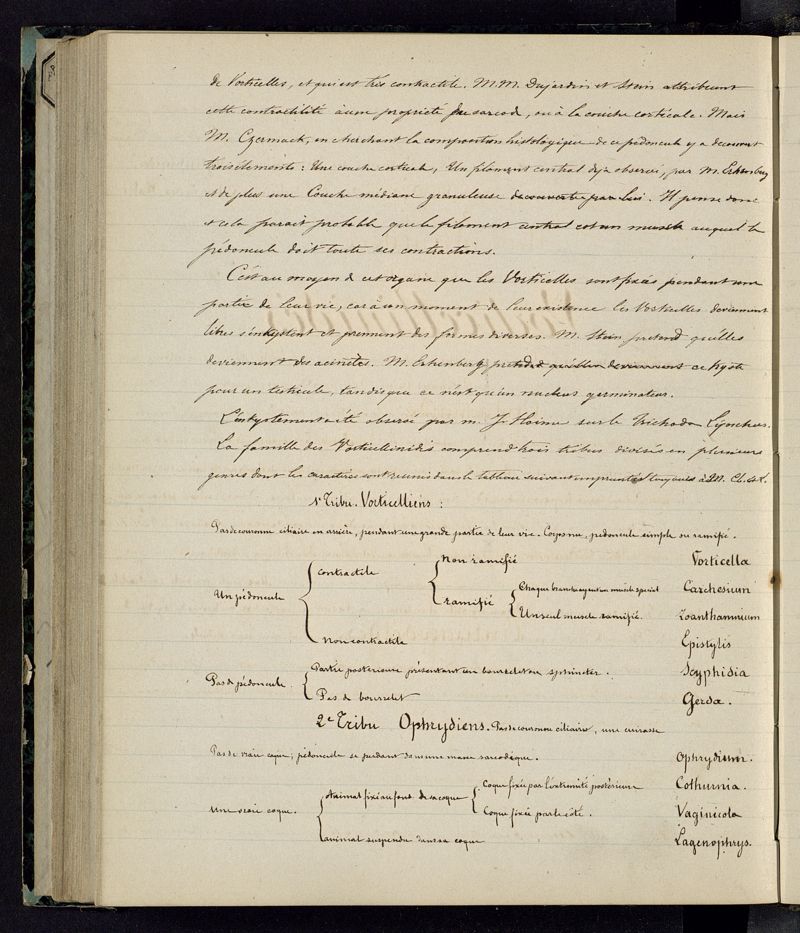 de Vorticelles, et qui est très contractile. M.M. Dujardin et Stein attribuent
cette contractilité à une propriété du sarcod, ou à la couche corticale. Mais
M. Czermack, en cherchant la composition histologique de ce pédoncule y a découvert
trois éléments : Une couche corticale, Un filament central déjà observé, par M. Erhenberg
et de plus une Couche médiane granuleuse découverte par lui. Il pense donc
et cela parait probable que le filament central est un muscle auquel le
pédoncule doit toute ses contractions.
C'est au moyen de cet organe que les Vorticelles sont fixées pendant une
partie de leur vie, car à un moment de leur existence les Vorticelles deviennent
libres s'enkystent et prennent des formes diverses. M. Stein prétend qu'elles
deviennent des acinètes. M. Erhenberg prend ce kyste
pour un testicule, tandis que ce n'est qu'un nucleus germinateur.
L'enkystement a été observé par m. J. Haime sur le Trichoda Lynceus.
La famille des Vorticellinidés comprend trois tribus divisés en plusieurs
genres dont les caractères sont réunis dans le tableau suivant emprunté toujours à M. Cl. et L.
1e Tribu. Vorticelliens :
Pas de couronne ciliaire en arrière, pendant une grande partie de leur vie. Corps nu, pédoncule simple ou ramifié.
Un pédoncule contractile non ramifié Vorticella
ramifié Chaque branche ayant un muscle spécial Carchesium
Un seul muscle ramifié. Zoanthamnium
non contractile Epistylis
Pas de pédoncule Partie postérieure présentant un bourrelet ou sphincter. Scyphidia
Pas de bourrelet Gerda.
2e Tribu Ophrydiens. Pas de couronne ciliaire, une cuirasse
Pas de vraie coque, pédoncule se perdant dans une masse sarcodique. Ophrydium.
Une vraie coque. Animal fixé au fond de sa coque Coque fixée par l'extrémité postérieure Cothurnia.
Coque fixée par le côté. Vaginicola
animal suspendu dans sa coque Lagenophrys.